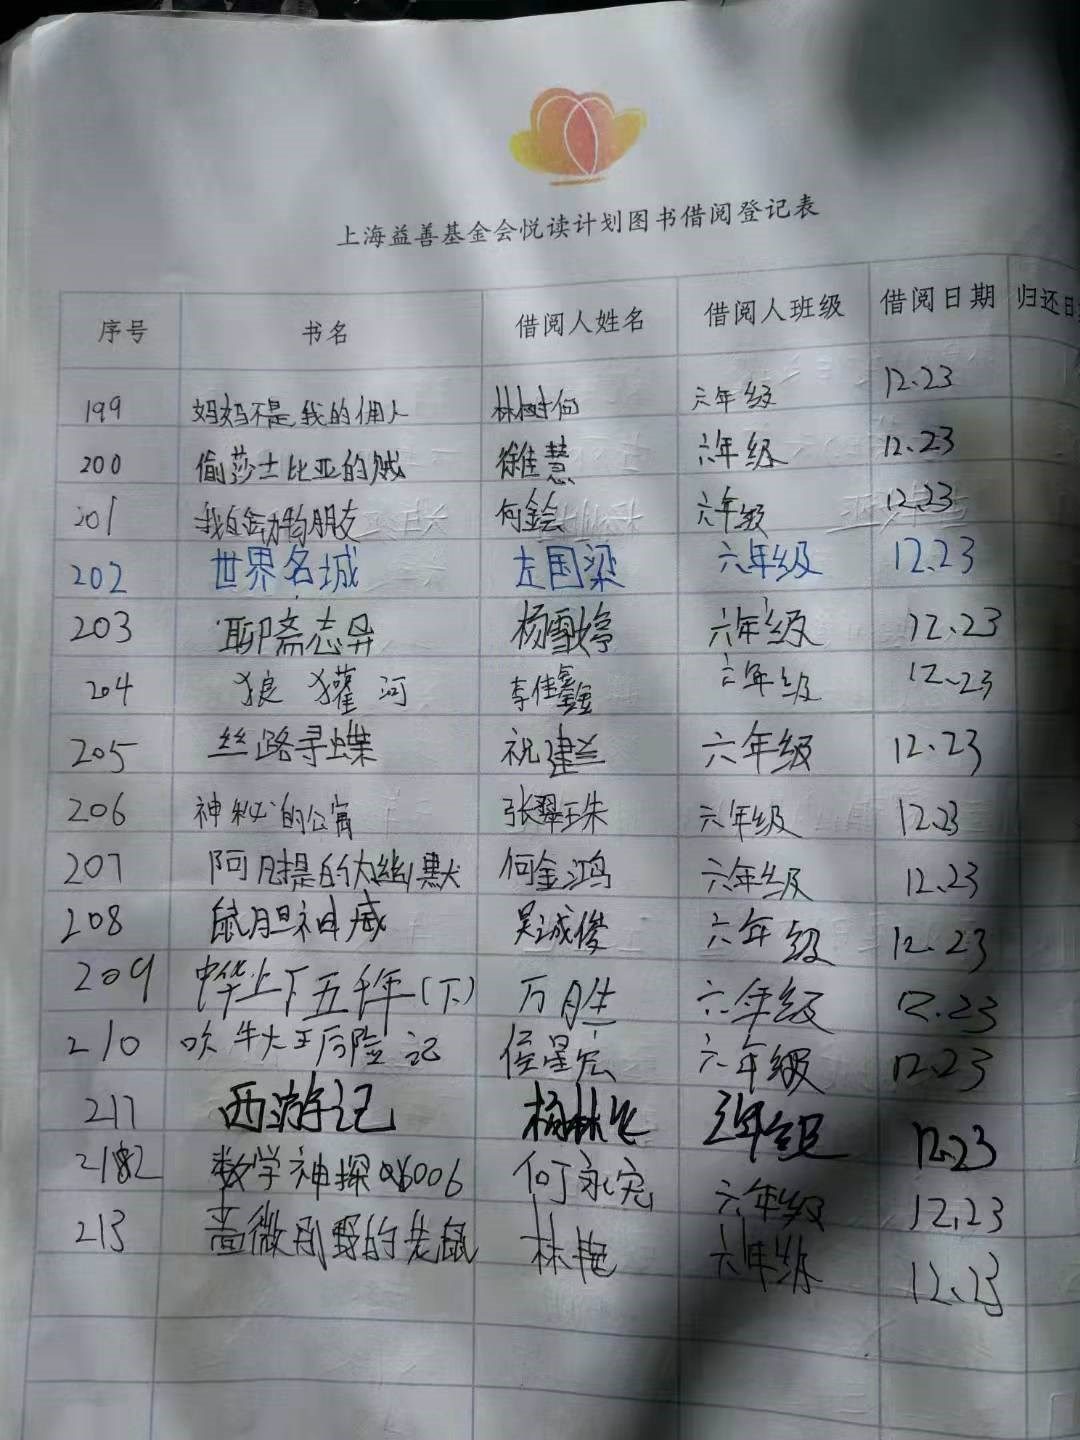 上海益善基金会悦读计划图书借阅登记表
序号 书名 借阅人姓名 借阅人班级 借阅日期 归还日
199 妈妈不是我的佣人 林树何 六年级 12.23
200 偷莎士比亚的贼 徐佳慧 六年级 12.23
201 我的动物朋友 何金会 六年级 12.23
202 世界名城 左国梁 六年级 12.23
203 聊斋志异 杨雪婷 六年级 12.23
204 狼獾河 李佳鑫 六年级 12.23
205 丝路寻蝶 祝建兰 六年级 12.23
206 神秘的公寓 张翠珠 六年级 12.23
207 阿凡提的幽默 何金鸿 六年级 12.23
208 鼠胆神威 吴诚俊 六年级 12.23
209 中华上下五千年(下) 万月生 六年级 12.23
210 吹牛大王历险记 侯星宏 六年级 12.23
211 西游记 杨林 年级 12.23
212 数学神探006 何永宽 六年级 12.23
213 蔷薇别野的老鼠 林艳 六年级 12.23